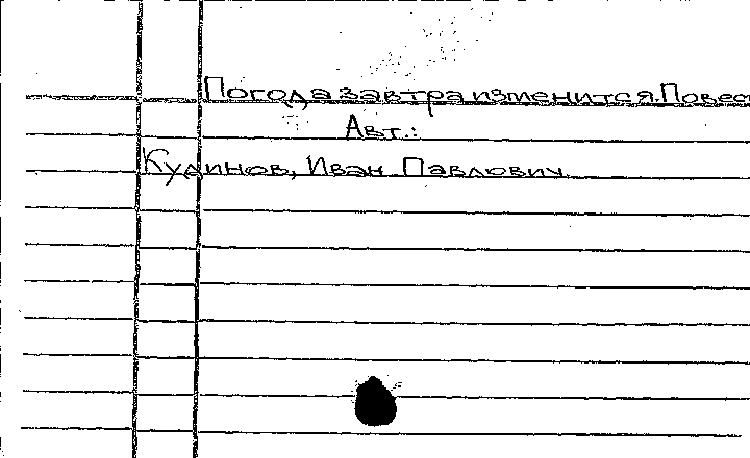 Погода завтра изменится. Повес
Авт.:
Кудинов, Иван Павлович.